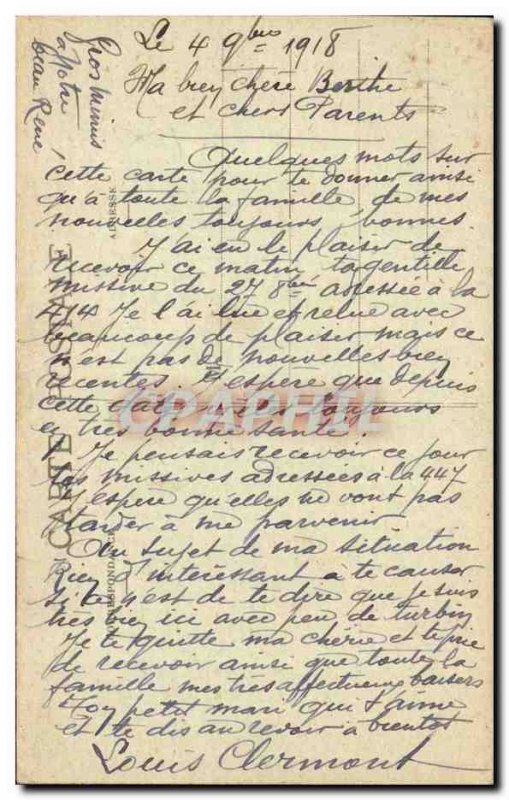 Le 4 9bre 1918
Ma bien chère Berthe
et chers Parents
Quelques mots sur
cette carte pour te donner ainsi
qu'à toute la famille de mes
nouvelles toujours bonnes.
J'ai eu le plaisir de
recevoir ce matin ta gentille
missive du 27 8bre adressée à la
414 Je l'ai lue et relue avec
beaucoup de plaisir mais ce
n'est pas de nouvelles bien
récentes. J'espère que depuis
cette date toujours
en très bonne santé.
Je pensais recevoir ce jour
tes missives adressées à la 447
J'espère qu'elles ne vont pas
tarder à me parvenir
Au sujet de ma situation
Rien d'intéressant à te causer
si ce n'est de te dire que je suis
très bien ici avec peu de turbin
Je te quitte ma chérie et te prie
de recevoir ainsi que toute la
famille mes très affectueux baisers
Ton petit mari qui t'aime
et te dis au revoir à bientôt
Louis Clermont
Gros mimis
à notre
beau René
CARTE POSTALE
ADRESSE
CPAPHIL